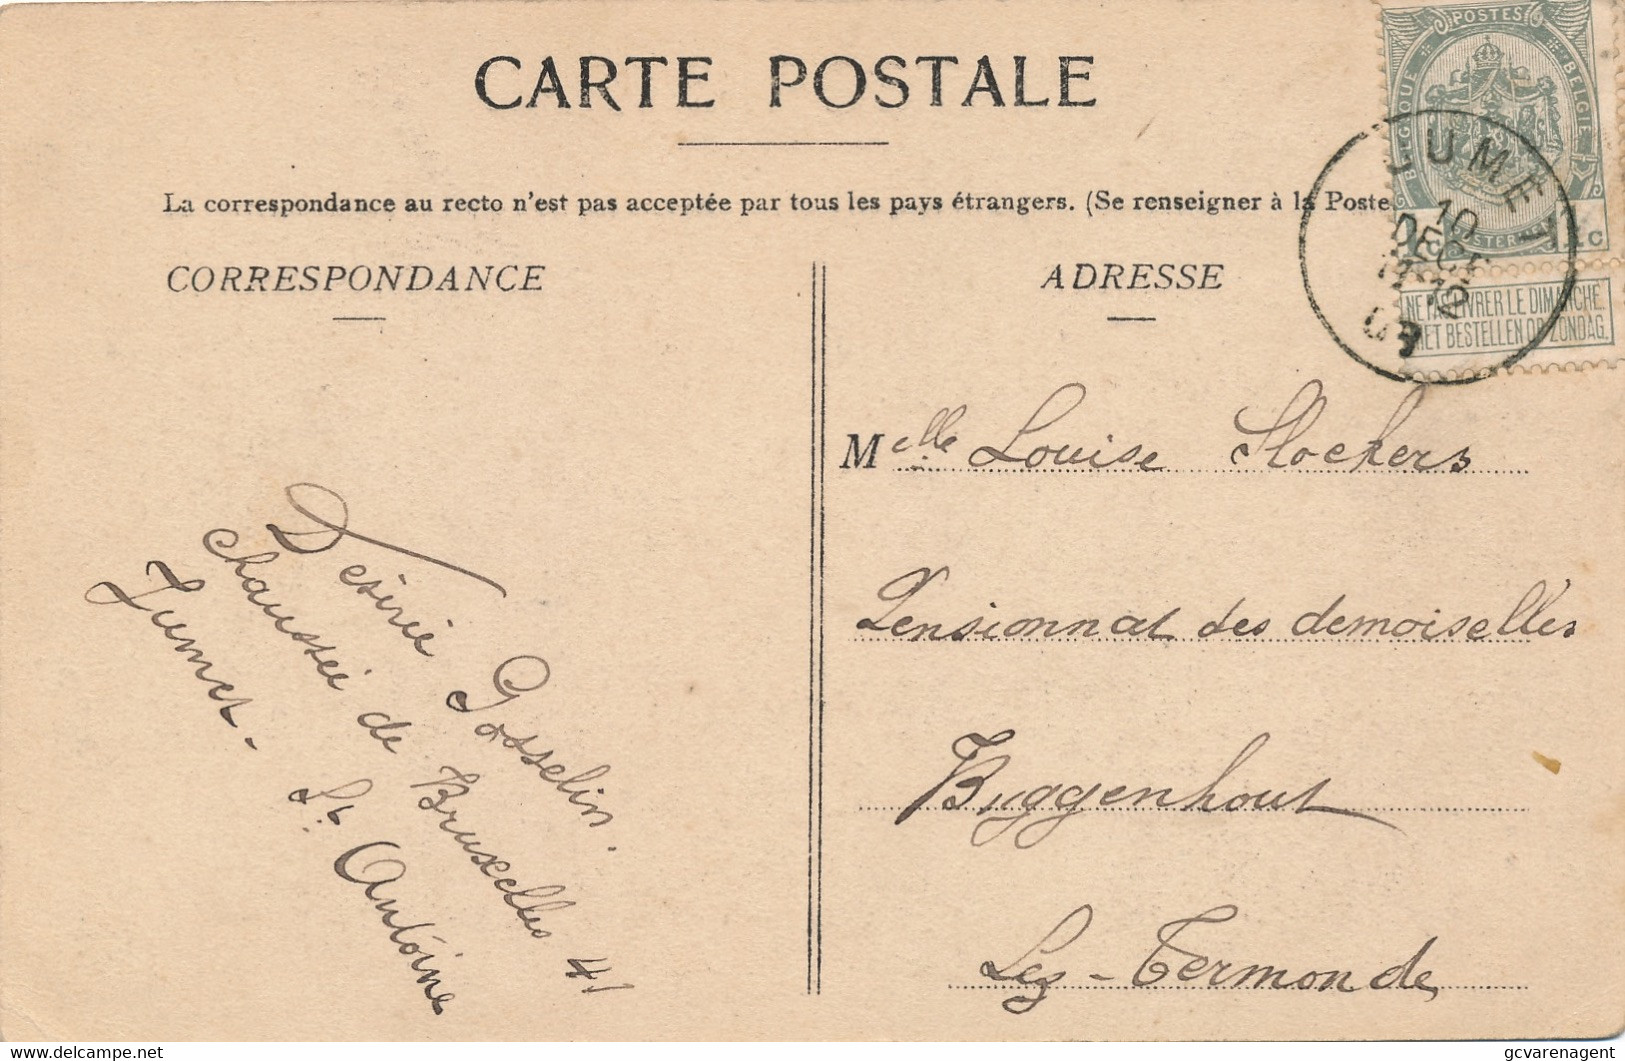 CARTE POSTALE
La correspondance au recto n'est pas acceptée par tous les pays étrangers. (Se renseigner à la Poste
CORRESPONDANCE
ADRESSE
POSTES
BELGIQUE
BELGIE
1 c
NE PAS LIVRER LE DIMANCHE.
NIET BESTELLEN OP ZONDAG.
JUMET
10
DEC
12
Melle Louise Stockers
Pensionnat des demoiselles
Buggenhout
Lez-Termonde
Desirée Gosselin.
chaussée de Bruxelles 41
Jumet - St. Antoine
delcampe.net
gcvarenagent